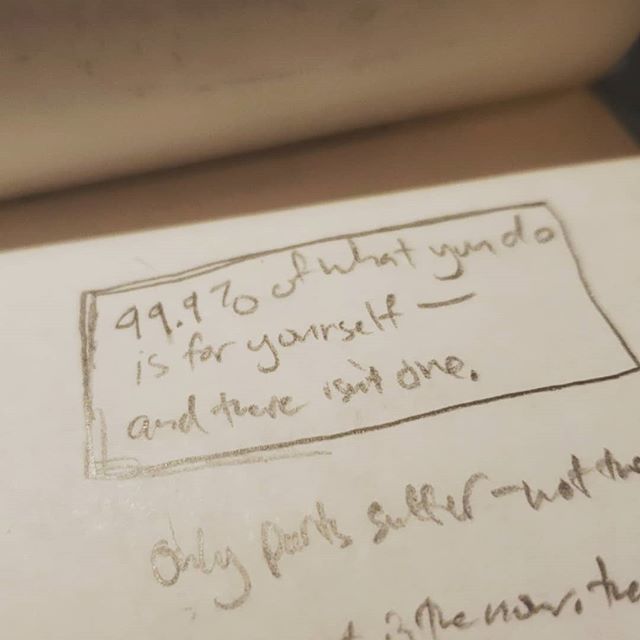 99.9% of what you do
is for yourself —
and there isn't one.
Only parts suffer – not the
is the now, the